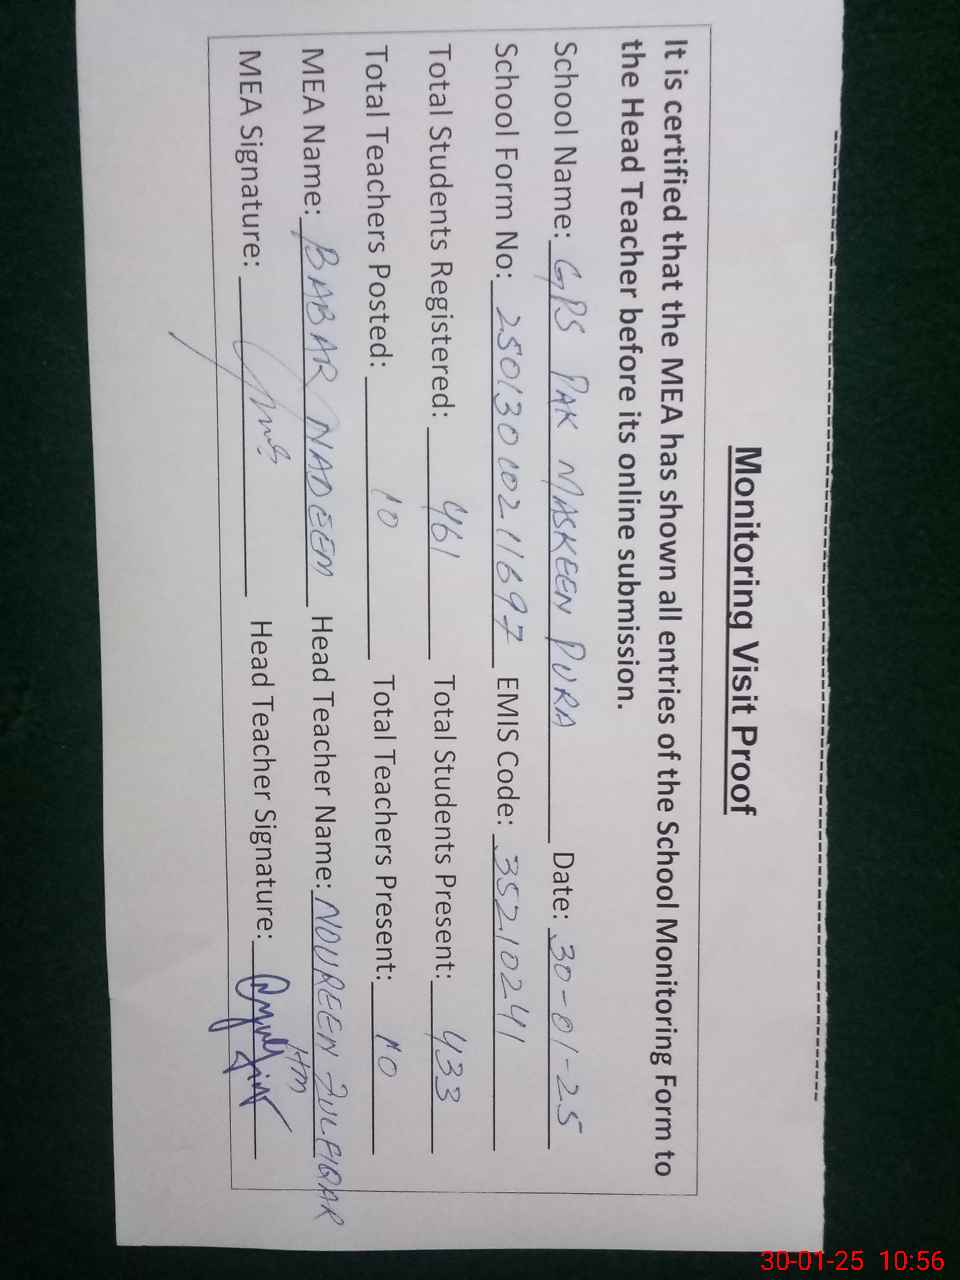 Monitoring Visit Proof
It is certified that the MEA has shown all entries of the School Monitoring Form to
the Head Teacher before its online submission.
School Name: GPS PAK MASKEEN PURA Date: 30-01-25
School Form No: 25013010211697 EMIS Code: 35210241
Total Students Registered: 461 Total Students Present: 433
Total Teachers Posted: 10 Total Teachers Present: 10
MEA Name: BABAR NADEEM Head Teacher Name: NOUREEN ZULFIQAR
HM
MEA Signature: Head Teacher Signature:
30-01-25 10:56